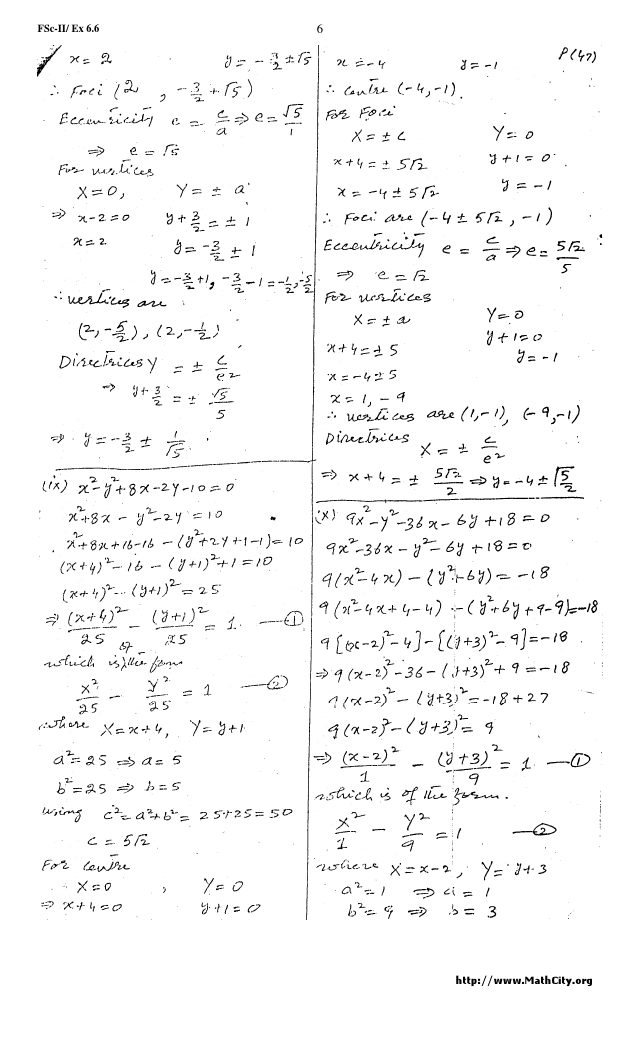 FSc-II/ Ex 6.6
6
P(47)
x = 2    y = -3/2 ± √5
∴ Foci (2 , -3/2 ± √5)
Eccentricity e = c/a ⇒ e = √5/1
⇒ e = √5
For vertices
X = 0,    Y = ± a
⇒ x-2=0    y+3/2 = ± 1
x = 2    y = -3/2 ± 1
y = -3/2+1, -3/2-1 = -1/2, -5/2
∴ vertices are
(2, -5/2), (2, -1/2)
Directrices Y = ± c/e²
⇒ y+3/2 = ± √5/5
⇒ y = -3/2 ± 1/√5
(ix) x²-y²+8x-2y-10=0
x²+8x - y²-2y = 10
x²+8x+16-16 - (y²+2y+1-1) = 10
(x+4)²-16 - (y+1)²+1 = 10
(x+4)² - (y+1)² = 25
⇒ (x+4)²/25 - (y+1)²/25 = 1 — ①
which is of the form
X²/25 - Y²/25 = 1 — ②
where X = x+4, Y = y+1
a² = 25 ⇒ a = 5
b² = 25 ⇒ b = 5
using c² = a²+b² = 25+25 = 50
c = 5√2
For centre
X = 0 , Y = 0
⇒ x+4=0    y+1=0
x = -4    y = -1
∴ centre (-4, -1)
For Foci
X = ± c    Y = 0
x+4 = ± 5√2    y+1 = 0
x = -4 ± 5√2    y = -1
∴ Foci are (-4 ± 5√2, -1)
Eccentricity e = c/a ⇒ e = 5√2/5
⇒ e = √2
For vertices
X = ± a    Y = 0
y+1=0
x+4 = ± 5    y = -1
x = -4 ± 5
x = 1, -9
∴ vertices are (1,-1), (-9,-1)
Directrices
X = ± c/e²
⇒ x+4 = ± 5√2/2 ⇒ y = -4 ± √5/2
(x) 9x²-y²-36x-6y+18=0
9x²-36x-y²-6y+18=0
9(x²-4x) - (y²+6y) = -18
9(x²-4x+4-4) - (y²+6y+9-9) = -18
9[(x-2)²-4] - [(y+3)²-9] = -18
⇒ 9(x-2)²-36-(y+3)²+9 = -18
9(x-2)² - (y+3)² = -18+27
9(x-2)² - (y+3)² = 9
⇒ (x-2)²/1 - (y+3)²/9 = 1 — ①
which is of the form.
X²/1 - Y²/9 = 1 — ②
where X = x-2, Y = y+3
a² = 1 ⇒ a = 1
b² = 9 ⇒ b = 3
http://www.MathCity.org